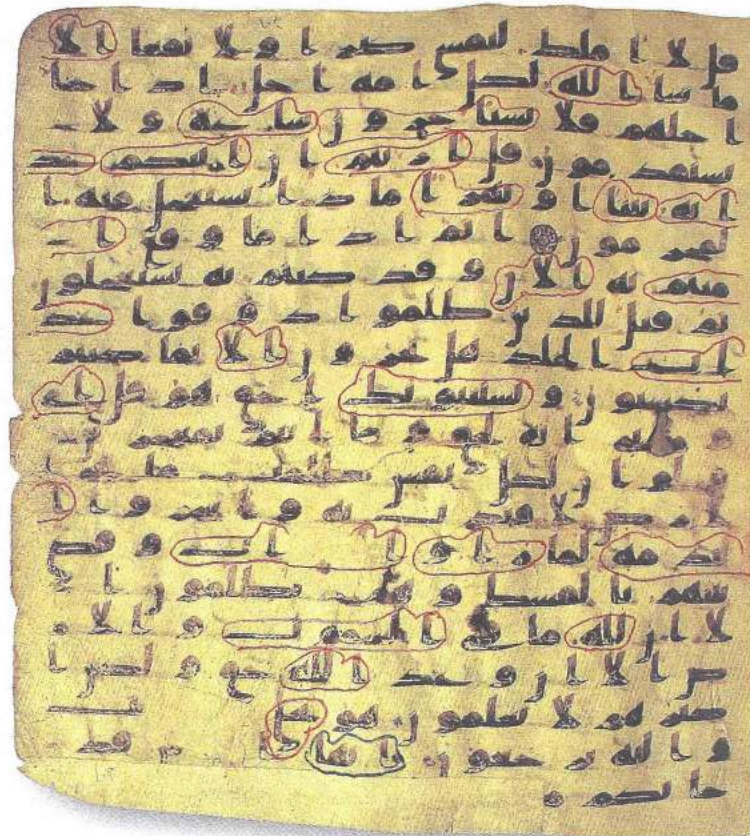 قل لا املك لنفسي ضرا ولا نفعا الا
ما شا الله لكل امة اجل اذا جا
اجلهم فلا يستاخرون ساعة ولا
يستقدمون قل ارايتم ان اتيكم عذ
ابه بيتا او نهرا ماذا يستعجل منه ا
لمجرمون اثم اذا ما وقع ا
منتم به الان وقد كنتم به تستعجلون
ثم قيل للذين ظلموا ذوقوا عذ
اب الخلد هل تجزون الا بما كنتم
تكسبون ويستنبونك احق هو قل اي
وربي انه لحق وما انتم بمعجزين
ولو ان لكل نفس ظلمت ما في ا
لارض لافتدت به واسروا ا
لندمة لما راوا العذاب وقضي
بينهم بالقسط وهم لا يظلمون ا
لا ان لله ما في السموت والا
رض الا ان وعد الله حق ولكن ا
كثرهم لا يعلمون هو يحي ويميت
واليه ترجعون يايها قد
جاتكم